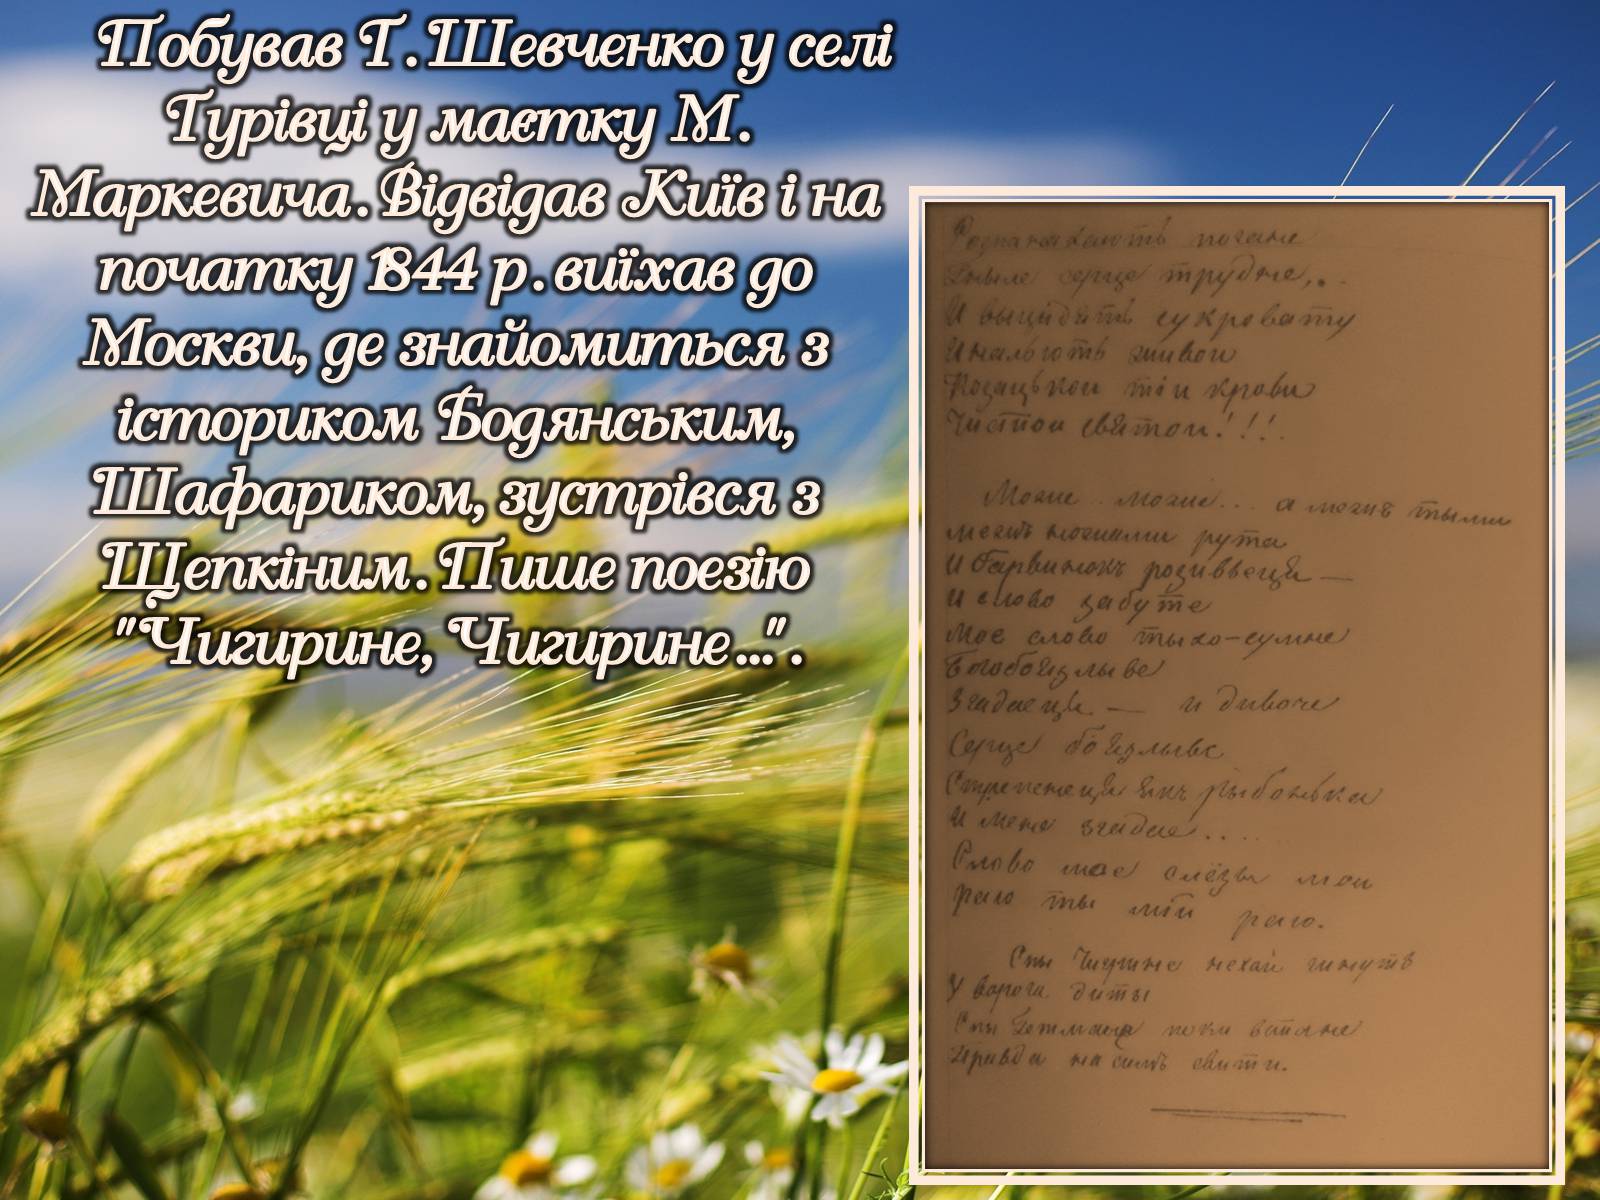 Побував Т.Шевченко у селі
Турівці у маєтку М.
Маркевича.Відвідав Київ і на
початку 1844 р.виїхав до
Москви, де знайомиться з
істориком Бодянським,
Шафариком, зустрівся з
Щепкіним.Пише поезію
"Чигирине, Чигирине...".
погане
серце трудне,..
И выцидять сукровату
И наллють живои
Козацькои тіи крови
Чистои святои!!!
Може.. може... а межъ тыми
межъ ножами рута
И барвинокъ розивьеця —
И слово забуте
Мое слово тыхо-сумне
Богобоязлыве
Згадаеця — и дивоче
Серце боязлыве
Стрепенеця якъ рыбонька
И мене згадае....
Слово мое слёзы мои
Раю ты мій раю.
Спы Чигрине нехай гинуть
У ворога диты
Спы Гетмане поки встане
Правда на симъ свити.